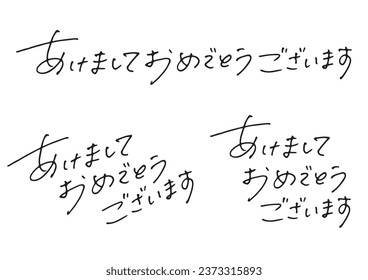 あけましておめでとうございます
あけまして
おめでとう
ございます
あけまして
おめでとう
ございます
shutterstock.com · 2373315893